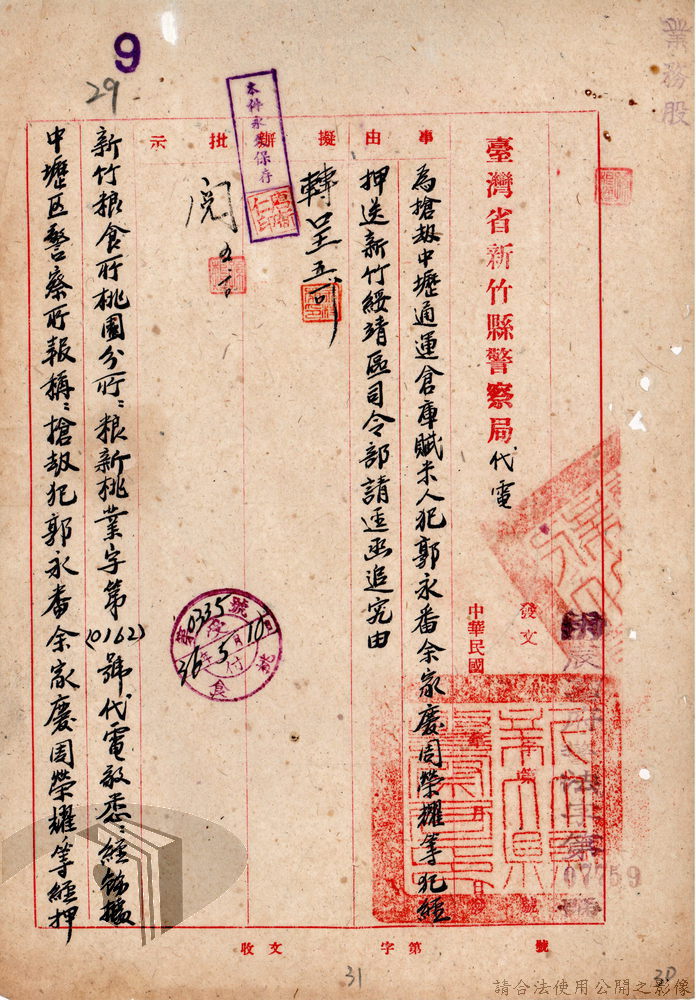 業務股
臺灣省新竹縣警察局代電
發文
中華民國
年 月 日
07759
號
事由
為搶刼中壢通運倉庫賦米人犯郭永番余家慶周榮耀等犯經
押送新竹綏靖區司令部請逕函追究由
擬辦
轉呈
批示
閱
本件永久保存
第0335號
36年5月10日
收付
新竹粮食所桃園分所:粮新桃業字第(0162)號代電敬悉:經飭據
中壢区警察所報稱:搶刼犯郭永番余家慶周榮耀等經押
收文 字第 號
9
29
31
30
請合法使用公開之影像